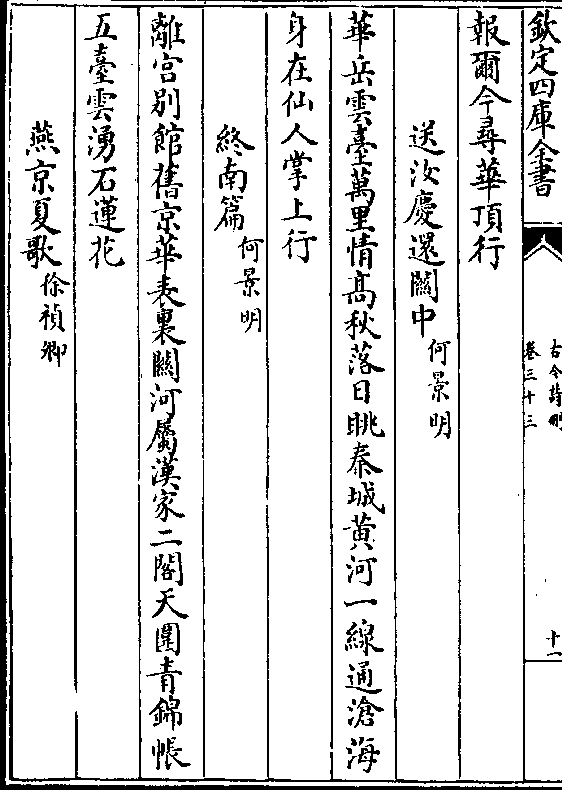 欽定四庫全書
古今詩刪
卷三十三
十一
報爾今尋華頂行
送汝慶還關中何景明
華岳雲臺萬里情髙秋落日眺秦城黄河一線通滄海
身在仙人掌上行
終南篇何景明
離宮別館舊京華表裏關河屬漢家二閣天圍青錦帳
五臺雲湧石蓮花
燕京夏歌徐禎卿